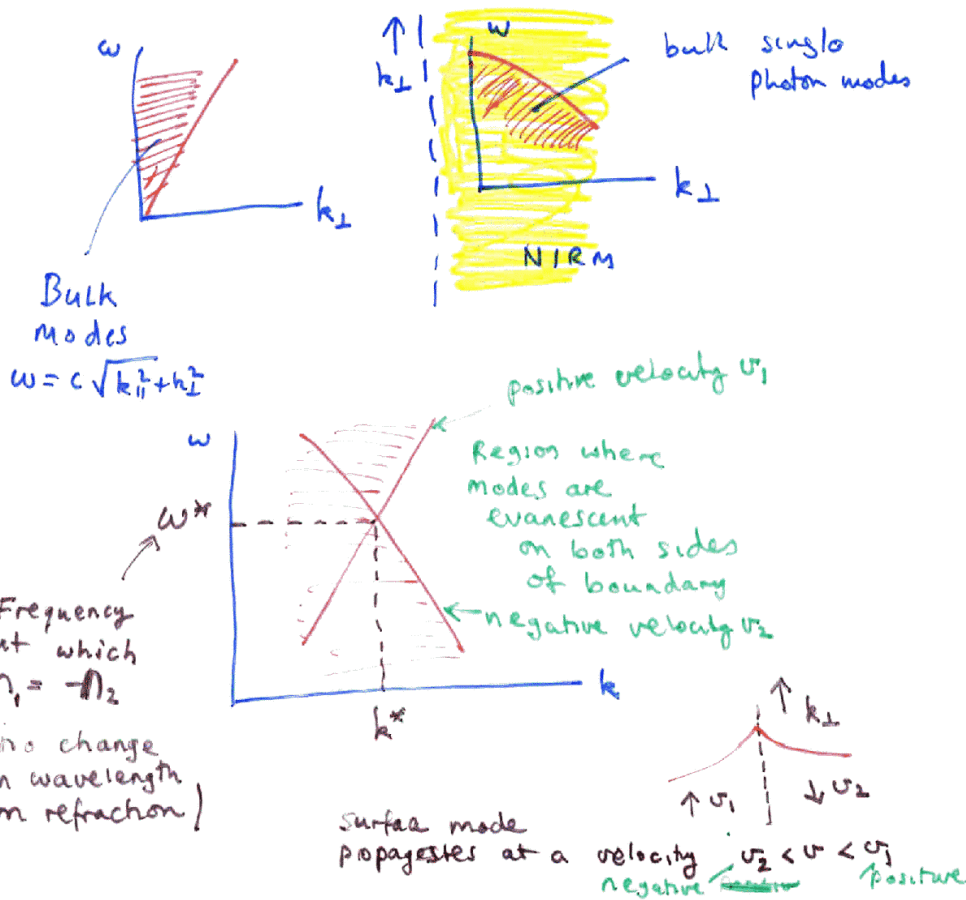 ω
k⊥
Bulk
modes
ω = c √k∥² + k⊥²
↑
k⊥
ω
k⊥
NIRM
bulk singlo
photon modes
positive velocity v₁
Region where
modes are
evanescent
on both sides
of boundary
negative velocity v₂
ω
ω*
k*
k
Frequency
at which
n₁ = -n₂
no change
in wavelength
on refraction)
↑ k⊥
↑ v₁
↓ v₂
Surfaa mode
propagates at a velocity v₂ < v < v₁
negative
positive